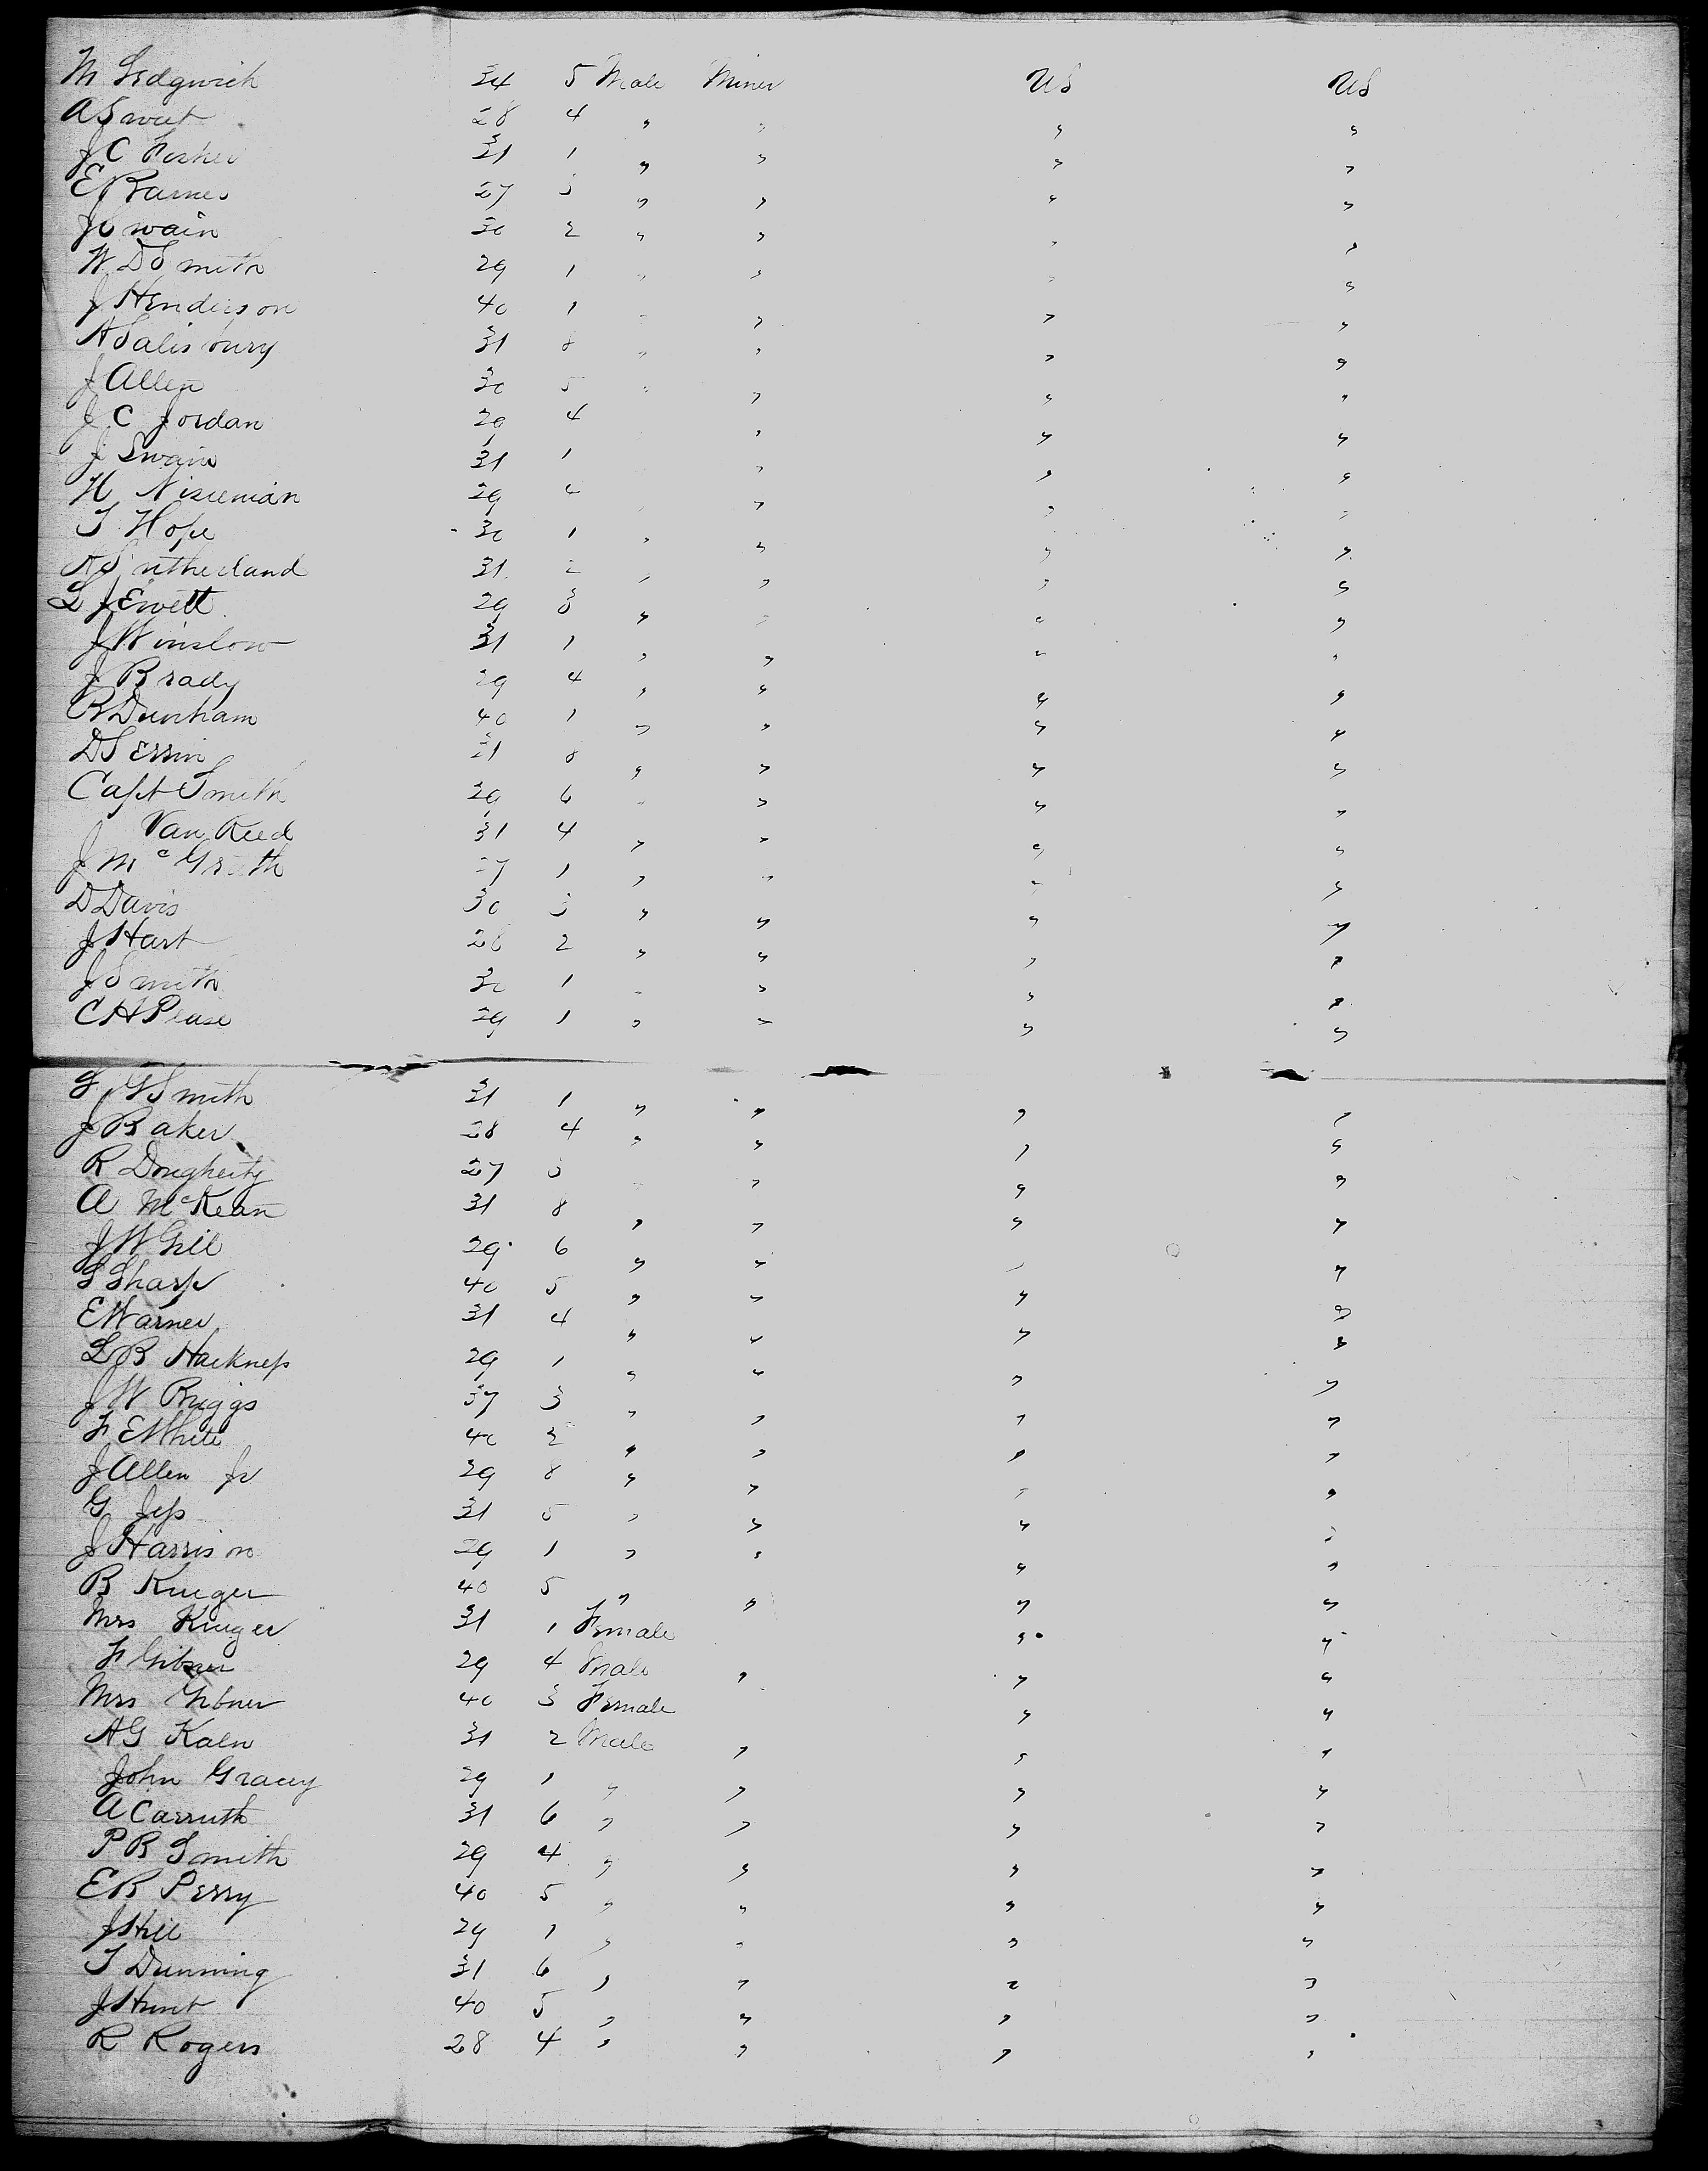 M Sedgwick 34 5 Male Miner US US
A Sweet 28 4 " " " "
J C Fisher 31 1 " " " "
E Barnes 27 3 " " " "
J Swain 30 2 " " " "
W D Smith 29 1 " " " "
J Henderson 40 1 " " " "
A Salisbury 31 8 " " " "
J Allen 30 5 " " " "
J C Jordan 29 4 " " "
J Swain 31 1 " " "
H Niseeman 29 4 " " " "
T Hope 30 1 " " " "
A Sutherland 31 2 " " " "
L Jewett 29 3 " " " "
J Winslow 31 1 " " " "
J Brady 29 4 " " " "
R Dunham 40 1 " " " "
D S Errin 31 8 " " " "
Capt Smith 29 6 " " " "
Van Reed 31 4 " " " "
J McGrath 27 1 " " " "
D Davis 30 3 " " " "
J Hart 28 2 " " " "
J Smith 30 1 " " " "
C H Pease 29 1 " " " "
G Smith 31 1 " " " "
J Baker 28 4 " " " "
R Dougherty 27 3 " " " "
A McKean 31 8 " " " "
J W Gill 29 6 " " " "
S Sharp 40 5 " " " "
E Warner 31 4 " " " "
L B Harkness 29 1 " " " "
J W Briggs 37 3 " " " "
F E White 40 2 " " " "
J Allen Jr 29 8 " " " "
G Jess 31 5 " " " "
J Harrison 29 1 " " " "
B Kruger 40 5 " " " "
Mrs Kruger 31 1 Female " "
F Gibner 29 4 Male " " "
Mrs Gibner 40 3 Female " "
A G Kalw 31 2 Male " " "
John Gracey 29 1 " " " "
A Carruth 31 6 " " " "
P B Smith 29 4 " " " "
E B Perry 40 5 " " " "
J Hill 29 1 " " " "
T Dunning 31 6 " " " "
J Hunt 40 5 " " " "
R Rogers 28 4 " " " "